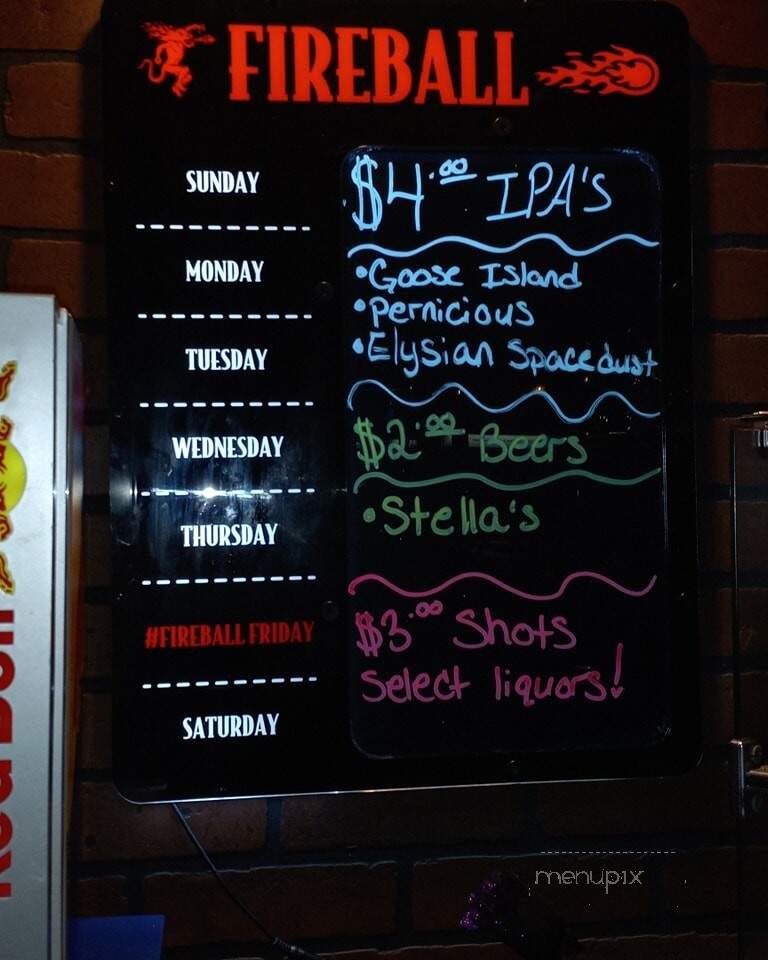 FIREBALL
SUNDAY
MONDAY
TUESDAY
WEDNESDAY
THURSDAY
#FIREBALL FRIDAY
SATURDAY
$4.00 IPA'S
•Goose Island
•Pernicious
•Elysian Spacedust
$2.00 Beers
•Stella's
$3.00 Shots
Select liquors!
Red Bull
menupix